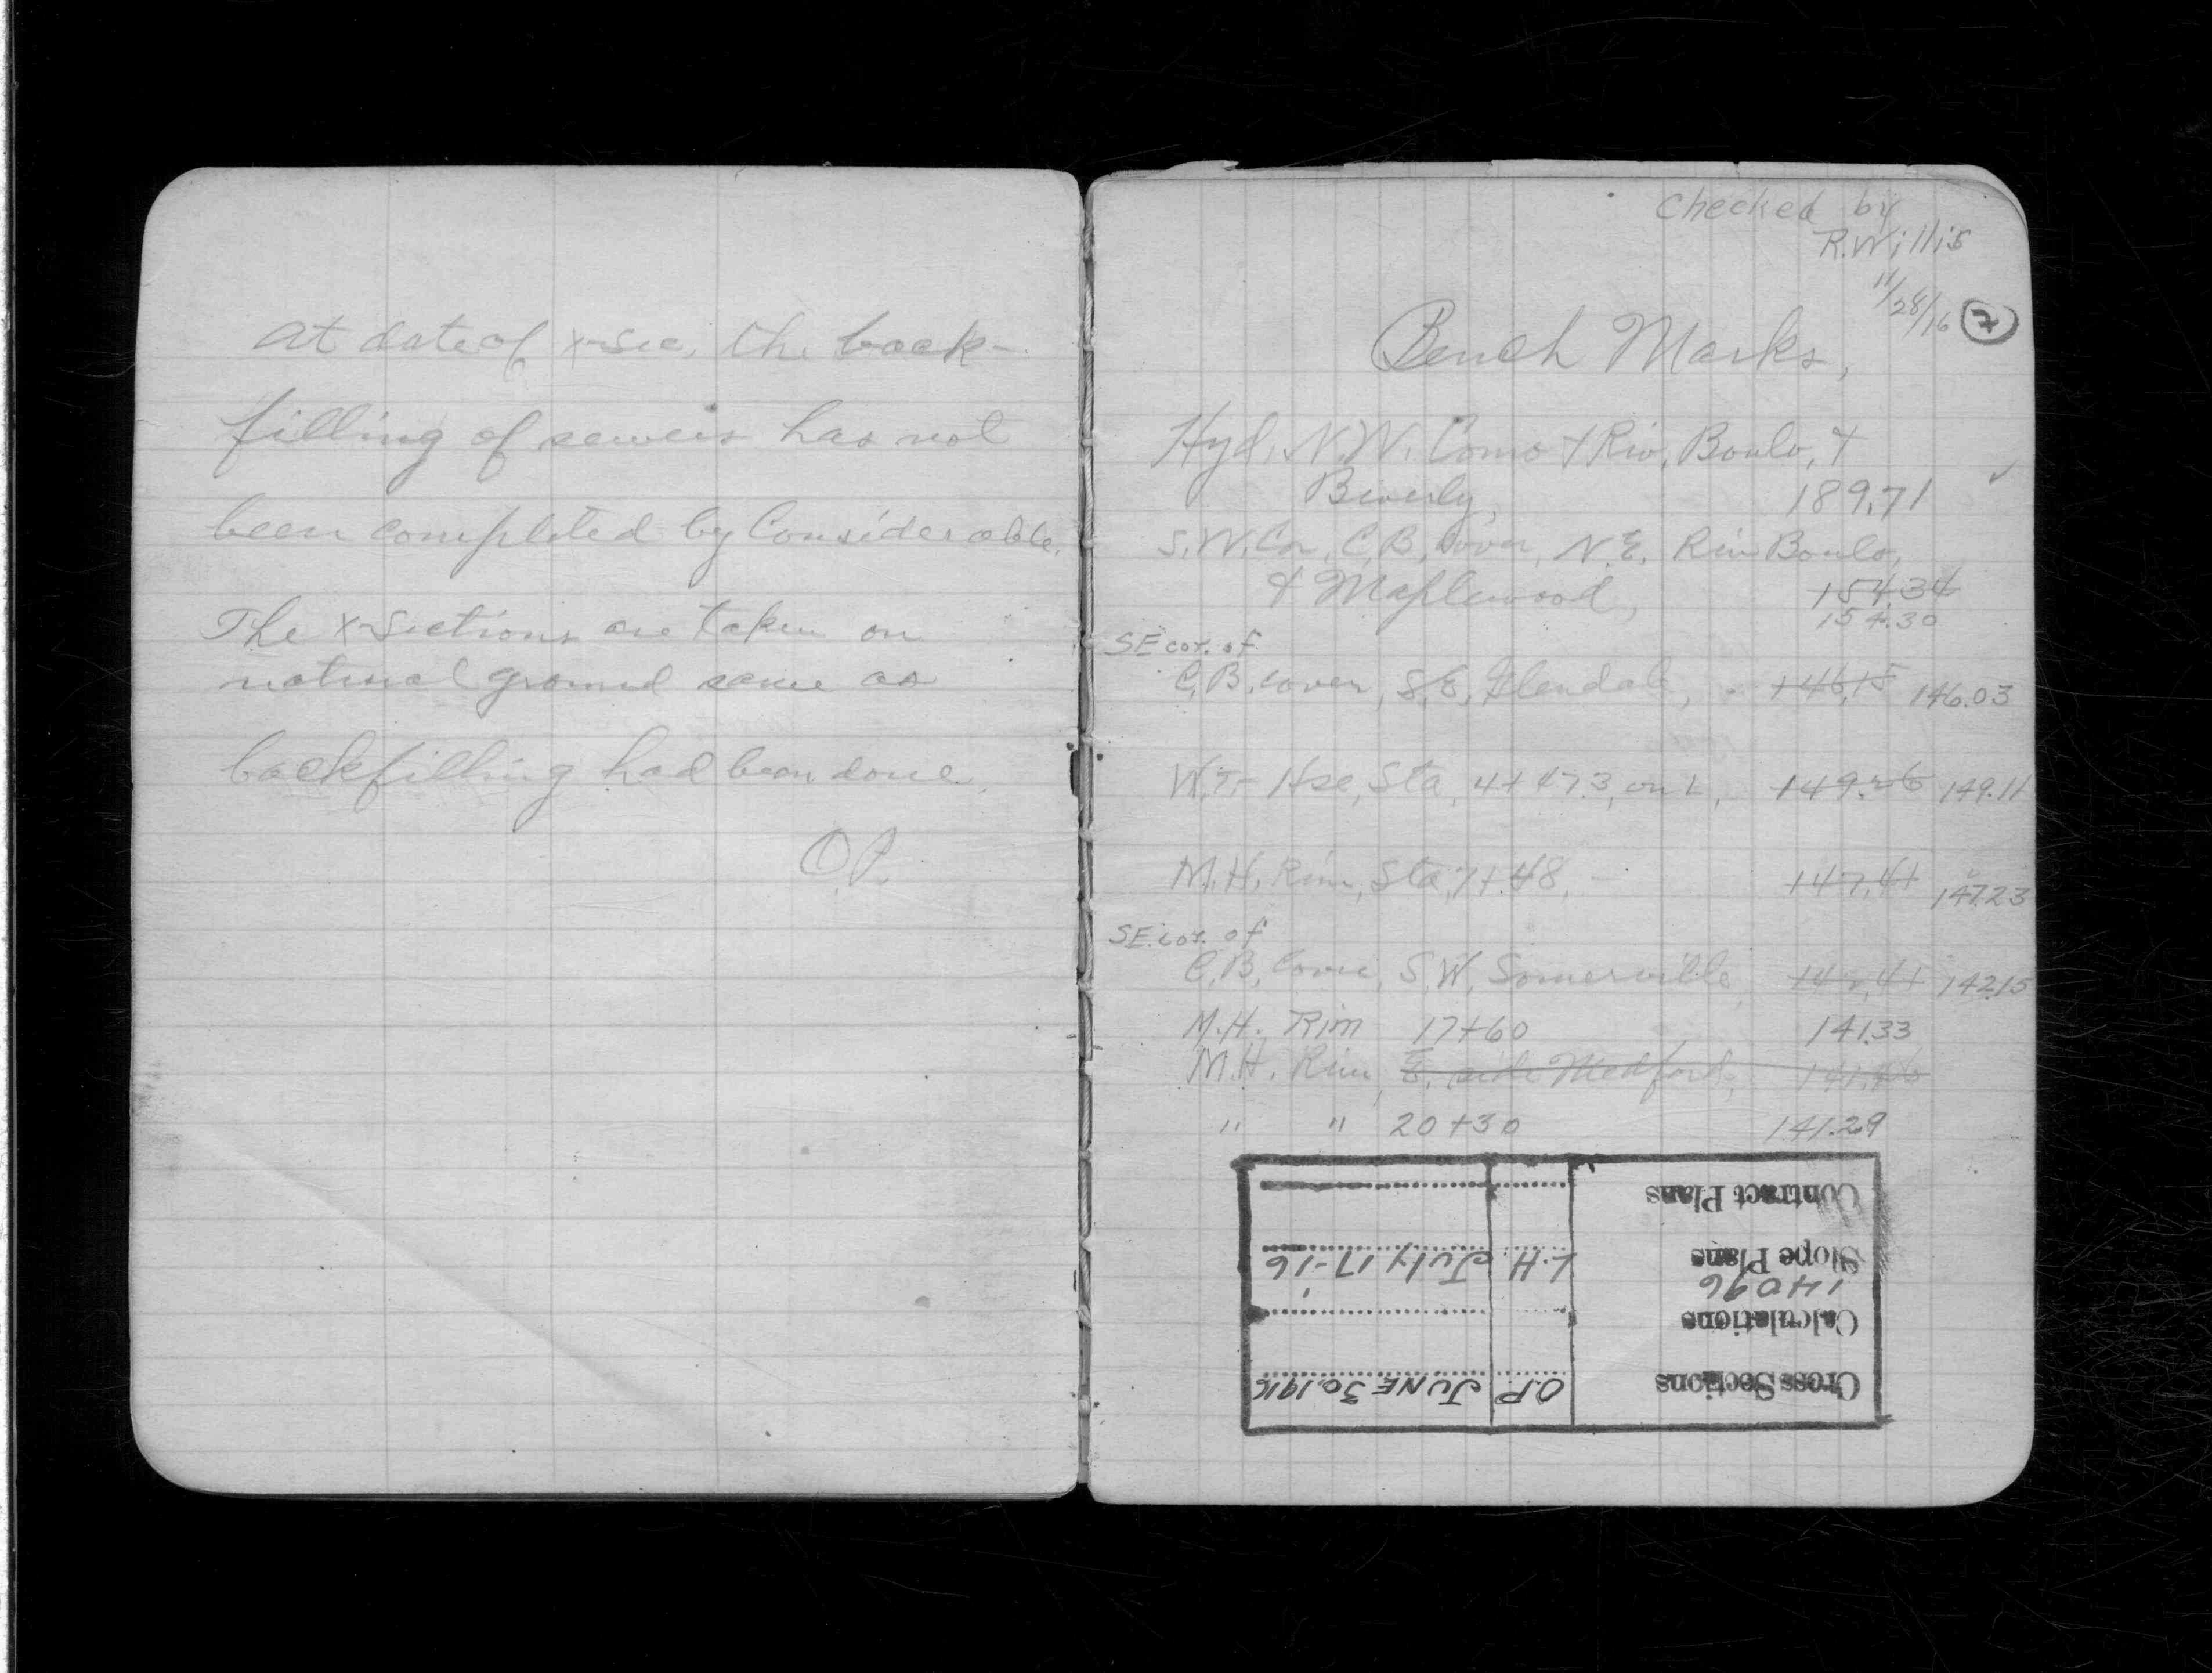 at date of x-sec. the back-
filling of sewers has not
been completed by Considerable.
The x-Sections are taken on
natural ground same as
backfilling had been done.
O.P.
Checked by
R. Willis
11/28/16
7
Bench Marks,
Hyd. N.W. Como & Riv. Boulv. &
Beverly, 189.71 ✓
S.W. Cor. C.B. Cover, N.E. Riv Boulv,
& Maplewood, 154.34
154.30
SE cor. of
C.B. cover, S.E. Glendale, 146.15 146.03
W.T. Hse, Sta, 4+47.3, on L, 149.26 149.11
M.H. Rim, Sta, 7+48, - 147.41 147.23
SE. cor. of
C.B. Cover, S.W. Somerville 142.41 142.15
M.H. Rim 17+60 141.33
M.H. Rim, E. side Medford,
" " 20+30 141.29
Cross Sections O.P. JUNE 30, 1916
Calculations
14096
Slope Plans L.H. July 17-16
Contract Plans